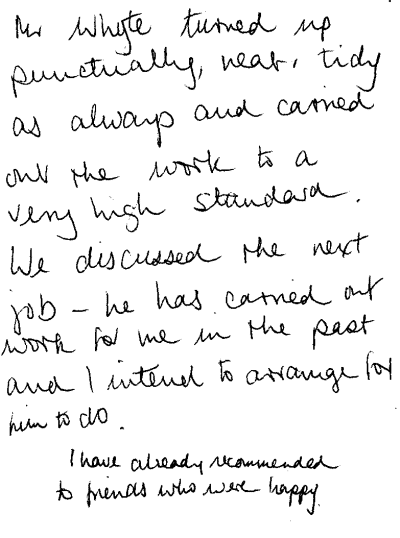 Mr Whyte turned up
punctually, neat, tidy
as always and carried
out the work to a
very high standard.
We discussed the next
job – he has carried out
work for me in the past
and I intend to arrange for
him to do.
I have already recommended
to friends who were happy.